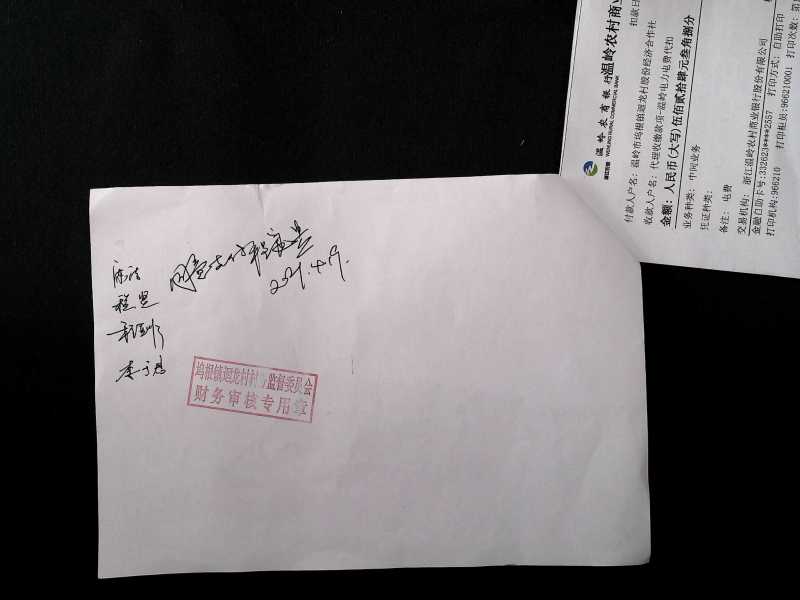 温岭农商银行
WENLING RURAL COMMERCIAL BANK
温岭农村商业
扣款日
付款人户名: 温岭市坞根镇迥龙村股份经济合作社
收款人户名: 代理收缴款项-温岭电力电费代扣
金额: 人民币(大写)伍佰贰拾肆元叁角捌分
业务种类: 中间业务
凭证种类:
备注: 电费
交易机构: 浙江温岭农村商业银行股份有限公司
金融自助卡号:332623****2557 打印方式: 自助打印
打印机构:966210 打印柜员:966210001 打印次数: 第
同意支付
2021.4.9.
坞根镇迥龙村村务监督委员会
财务审核专用章